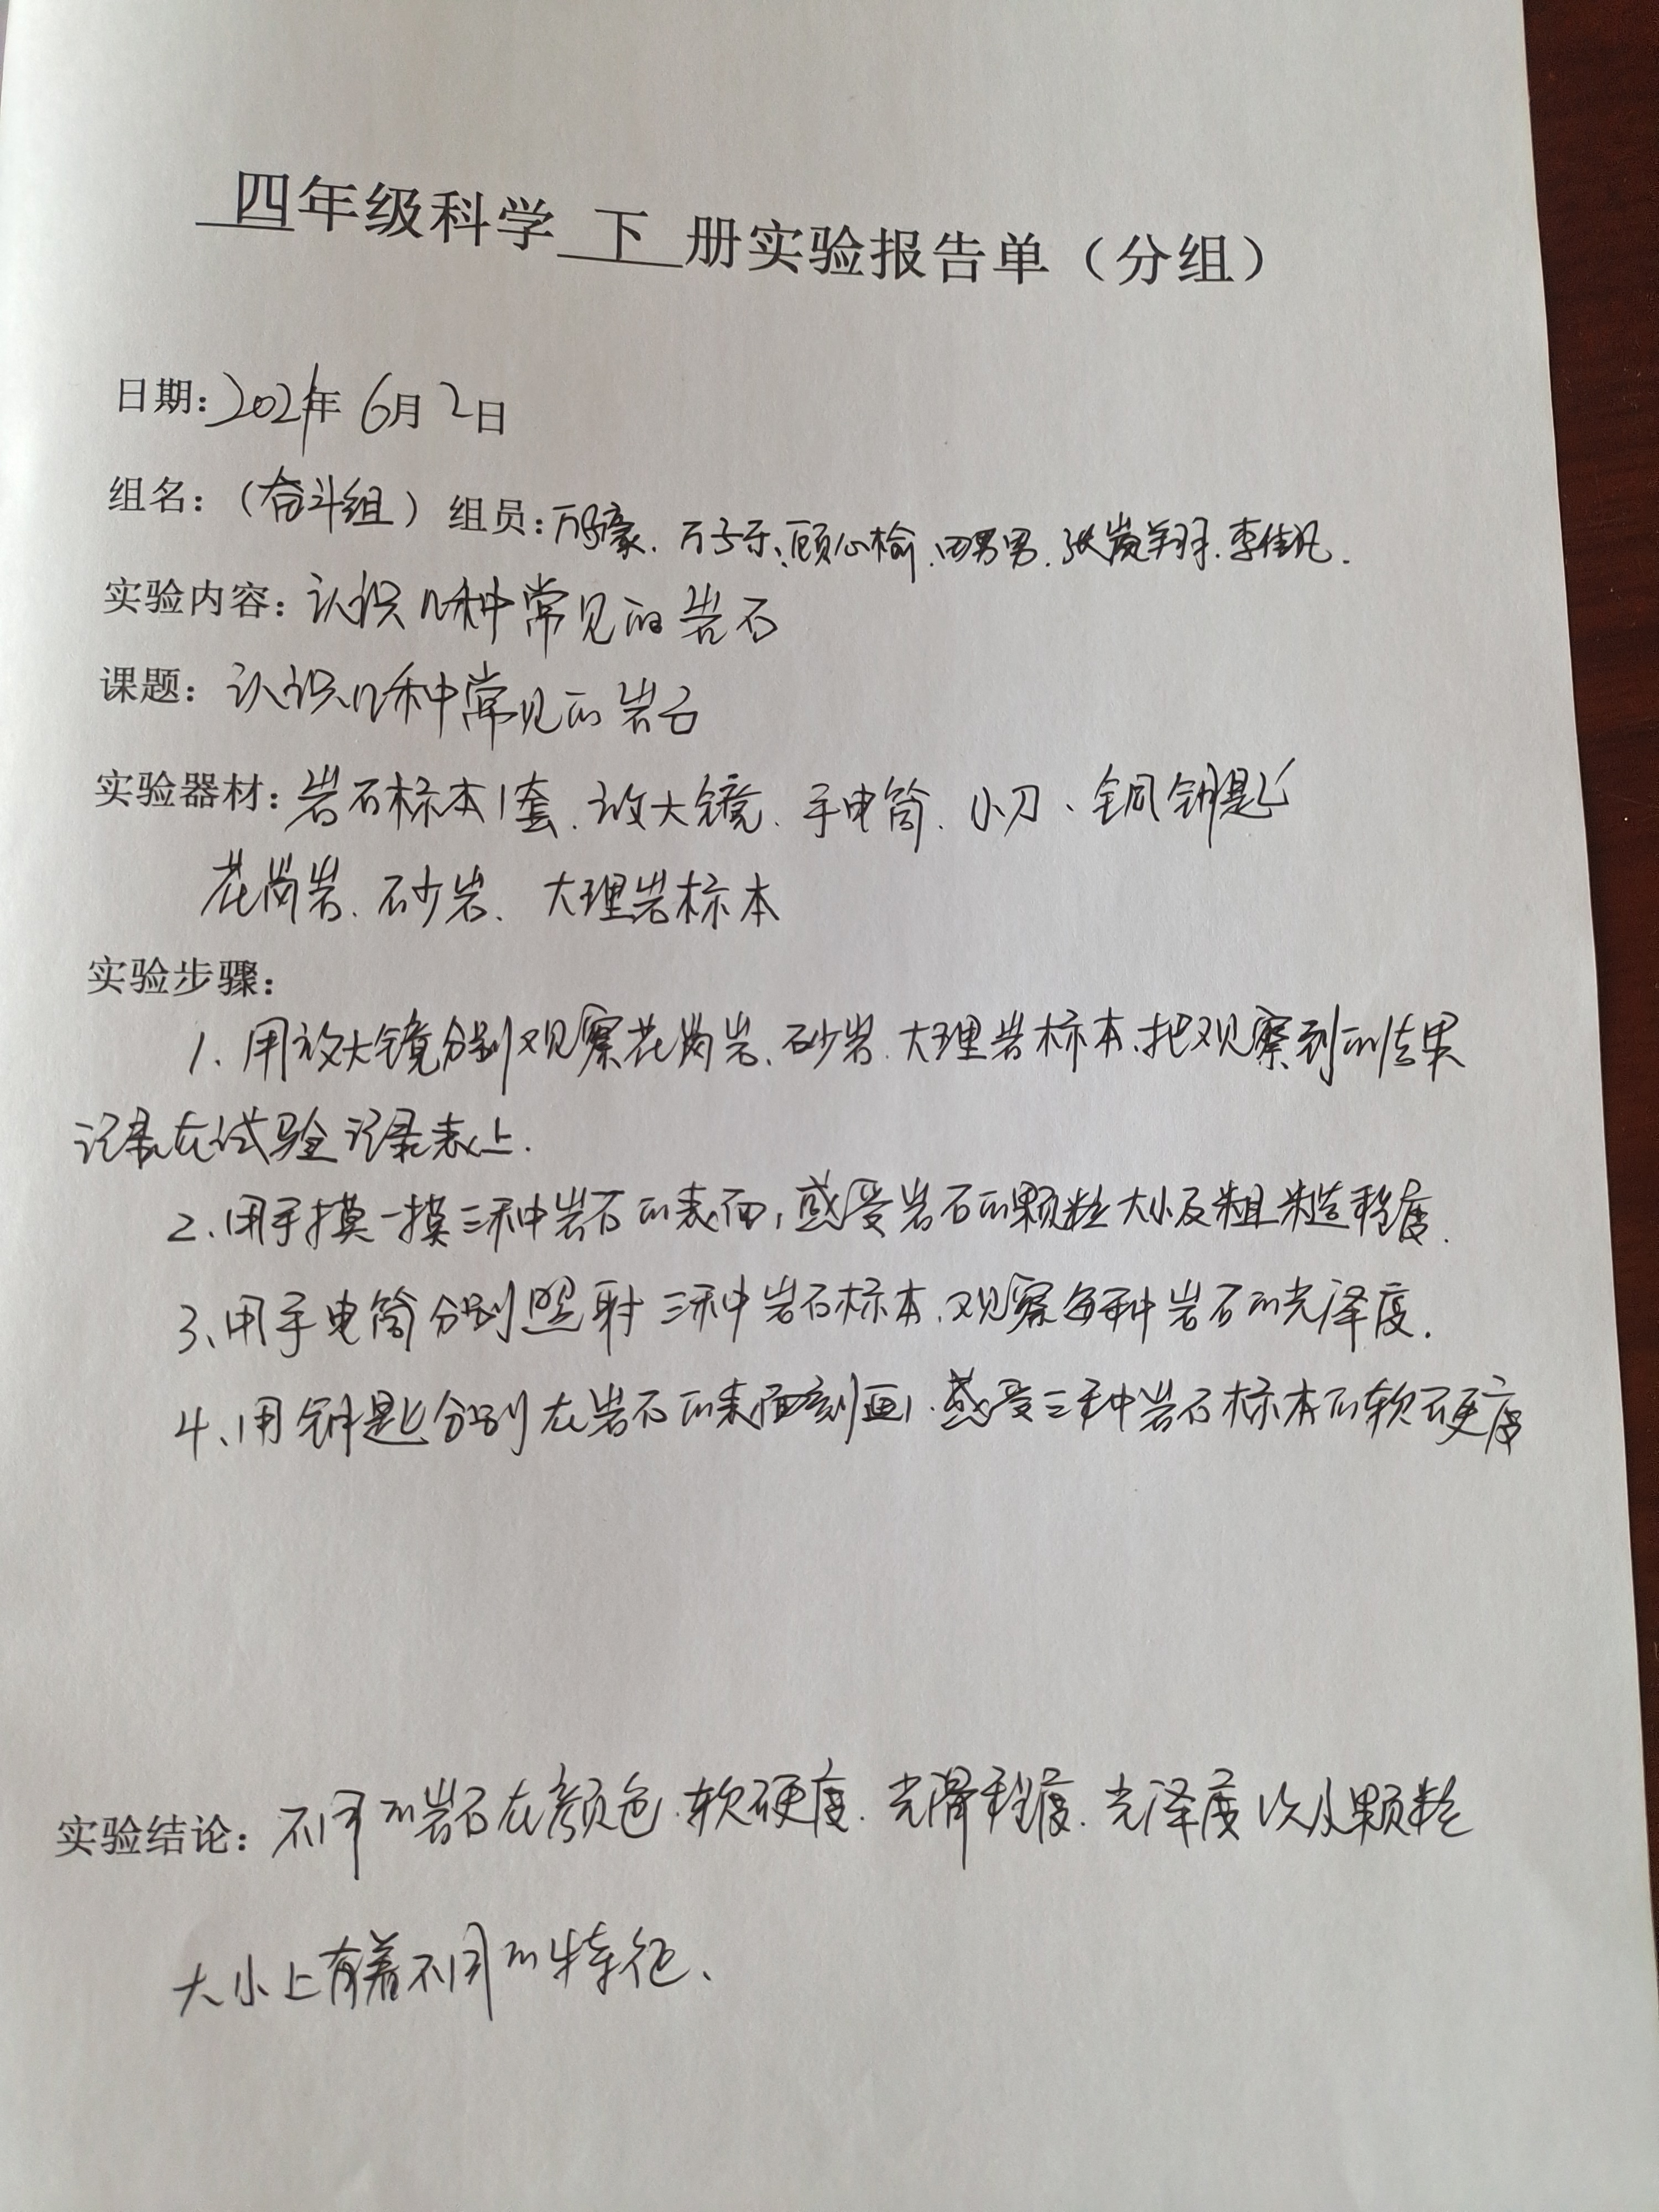 四年级科学 下 册实验报告单（分组）
日期：2021年 6月 2日
组名：（奋斗组）组员：万 豪、万子乐、顾心榆、田男男、张 翔、李佳凡.
实验内容：认识几种常见的岩石
课题：认识几种常见的岩石
实验器材：岩石标本1套、放大镜、手电筒、小刀、铜钥匙
花岗岩、砂岩、大理岩标本
实验步骤：
1、用放大镜分别观察花岗岩、砂岩、大理岩标本、把观察到的结果
记录在试验记录表上.
2、用手摸一摸三种岩石的表面，感受岩石的颗粒大小及粗糙程度.
3、用手电筒分别照射三种岩石标本、观察每种岩石的光泽度.
4、用钥匙分别在岩石的表面刻画、感受三种岩石标本的软硬度
实验结论：不同的岩石在颜色、软硬度、光滑程度、光泽度以及颗粒
大小上有着不同的特征、